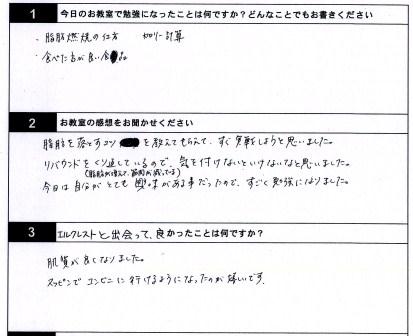 1 今日のお教室で勉強になったことは何ですか？どんなことでもお書きください
・脂肪燃焼の仕方 カロリー計算
・食べた方が良い食品
2 お教室の感想をお聞かせください
脂肪を落とすコツを教えてもらえて、すぐ実戦しようと思いました。
リバウンドをくり返しているので、気を付けないといけないなと思いました。
(脂肪が増えて、筋肉が減ってる)
今日は自分がとても興味がある事だったので、すごく勉強になりました。
3 エルクレストと出会って、良かったことは何ですか？
肌質が良くなりました。
スッピンでコンビニに行けるようになったのが嬉しいです。